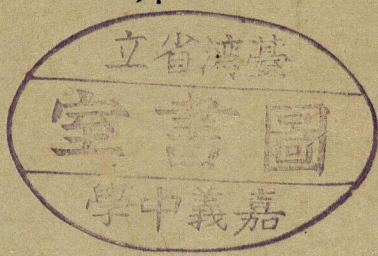 臺灣省立
圖書室
嘉義中學